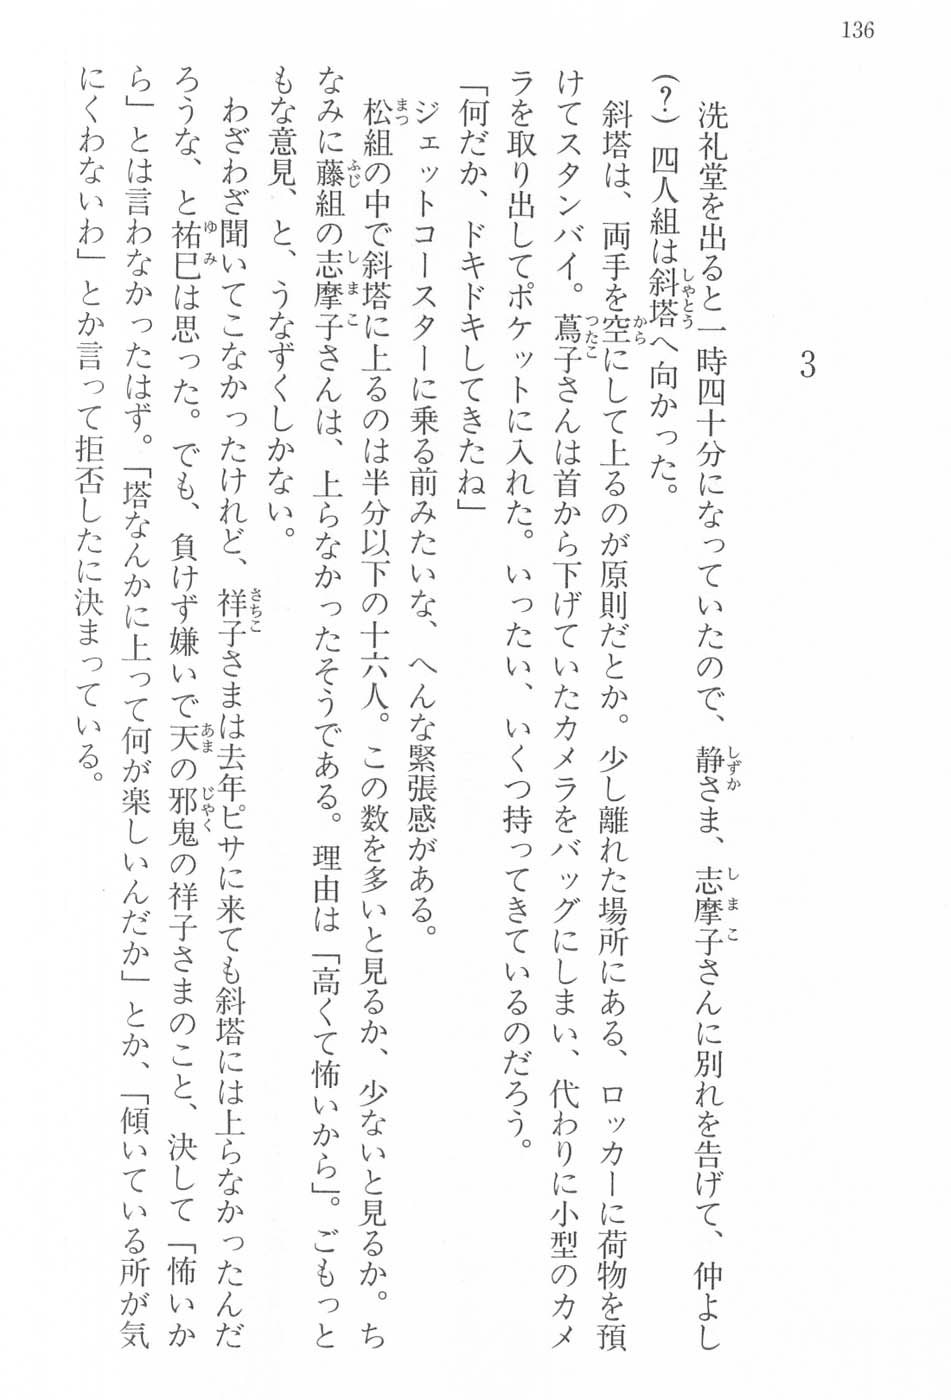 136
3
洗礼堂を出ると一時四十分になっていたので、静さま、志摩子さんに別れを告げて、仲よし
(?)四人組は斜塔へ向かった。
斜塔は、両手を空にして上るのが原則だとか。少し離れた場所にある、ロッカーに荷物を預
けてスタンバイ。蔦子さんは首から下げていたカメラをバッグにしまい、代わりに小型のカメ
ラを取り出してポケットに入れた。いったい、いくつ持ってきているのだろう。
「何だか、ドキドキしてきたね」
ジェットコースターに乗る前みたいな、へんな緊張感がある。
松組の中で斜塔に上るのは半分以下の十六人。この数を多いと見るか、少ないと見るか。ち
なみに藤組の志摩子さんは、上らなかったそうである。理由は「高くて怖いから」。ごもっと
もな意見、と、うなずくしかない。
わざわざ聞いてこなかったけれど、祥子さまは去年ピサに来ても斜塔には上らなかったんだ
ろうな、と祐巳は思った。でも、負けず嫌いで天の邪鬼の祥子さまのこと、決して「怖いか
ら」とは言わなかったはず。「塔なんかに上って何が楽しいんだか」とか、「傾いている所が気
にくわないわ」とか言って拒否したに決まっている。